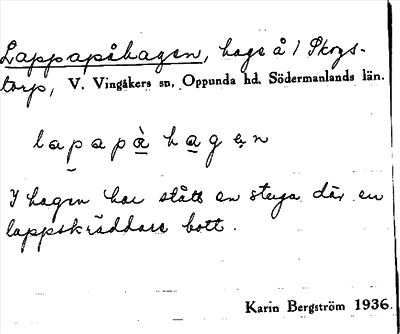 Lappapåhagen, hage å 1 Skogs-
torp, V. Vingåkers sn, Oppunda hd. Södermanlands län.
lapapà hagen
I hagen har stått en stuga där en
lappskräddare bott.
Karin Bergström 1936.